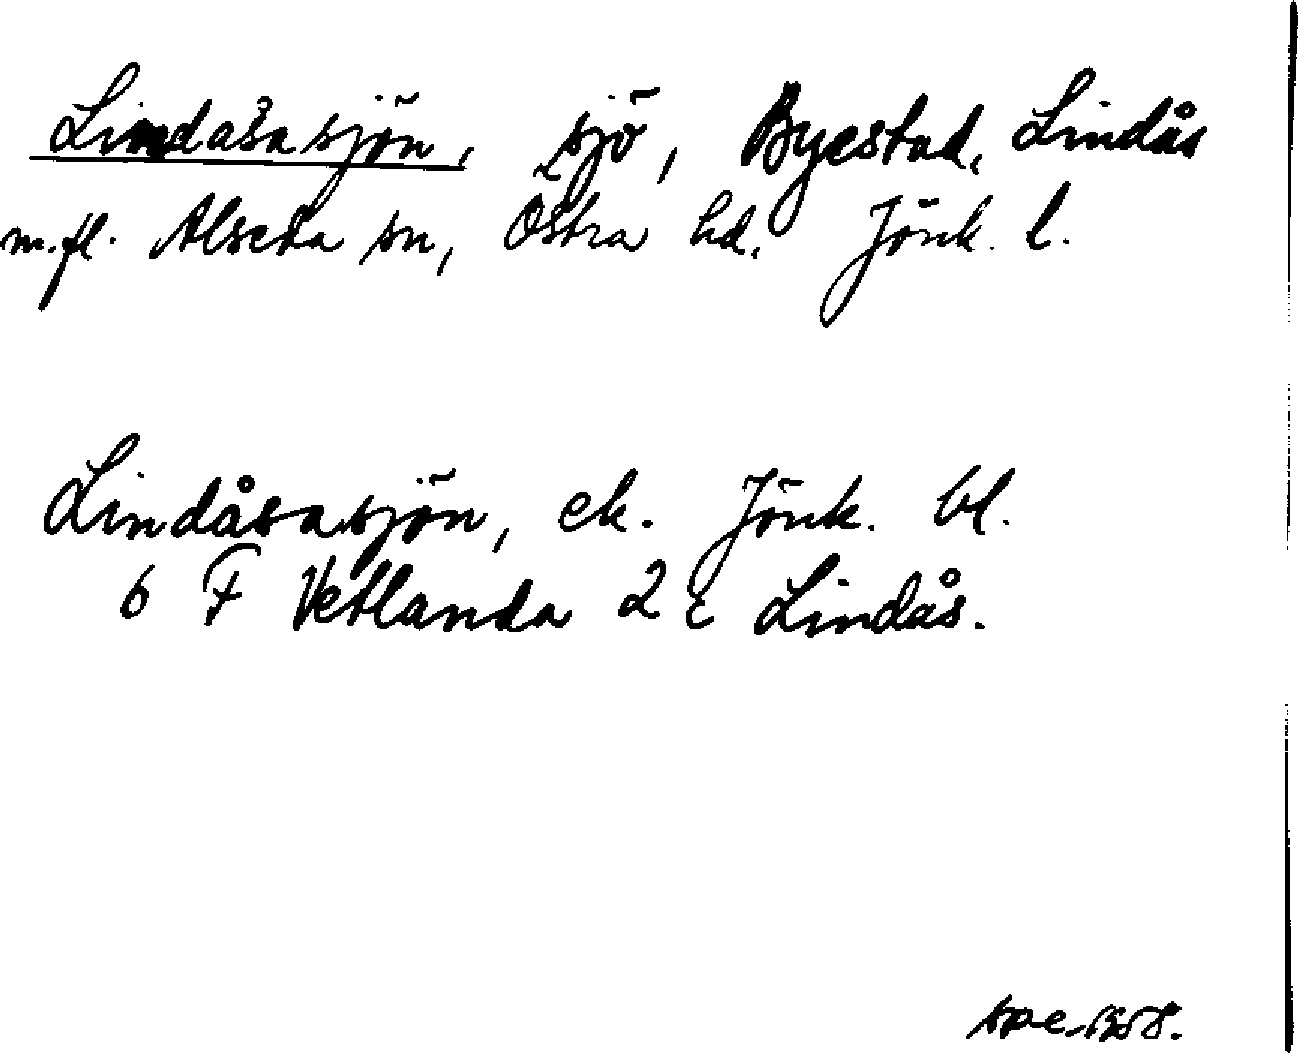 Lindåsasjön, sjö, Byestad, Lindås
m.fl. Alseda sn, Östra hd. Jönk. l.
Lindåsasjön, ek. Jönk. bl.
6 F Vetlanda 2 c Lindås.